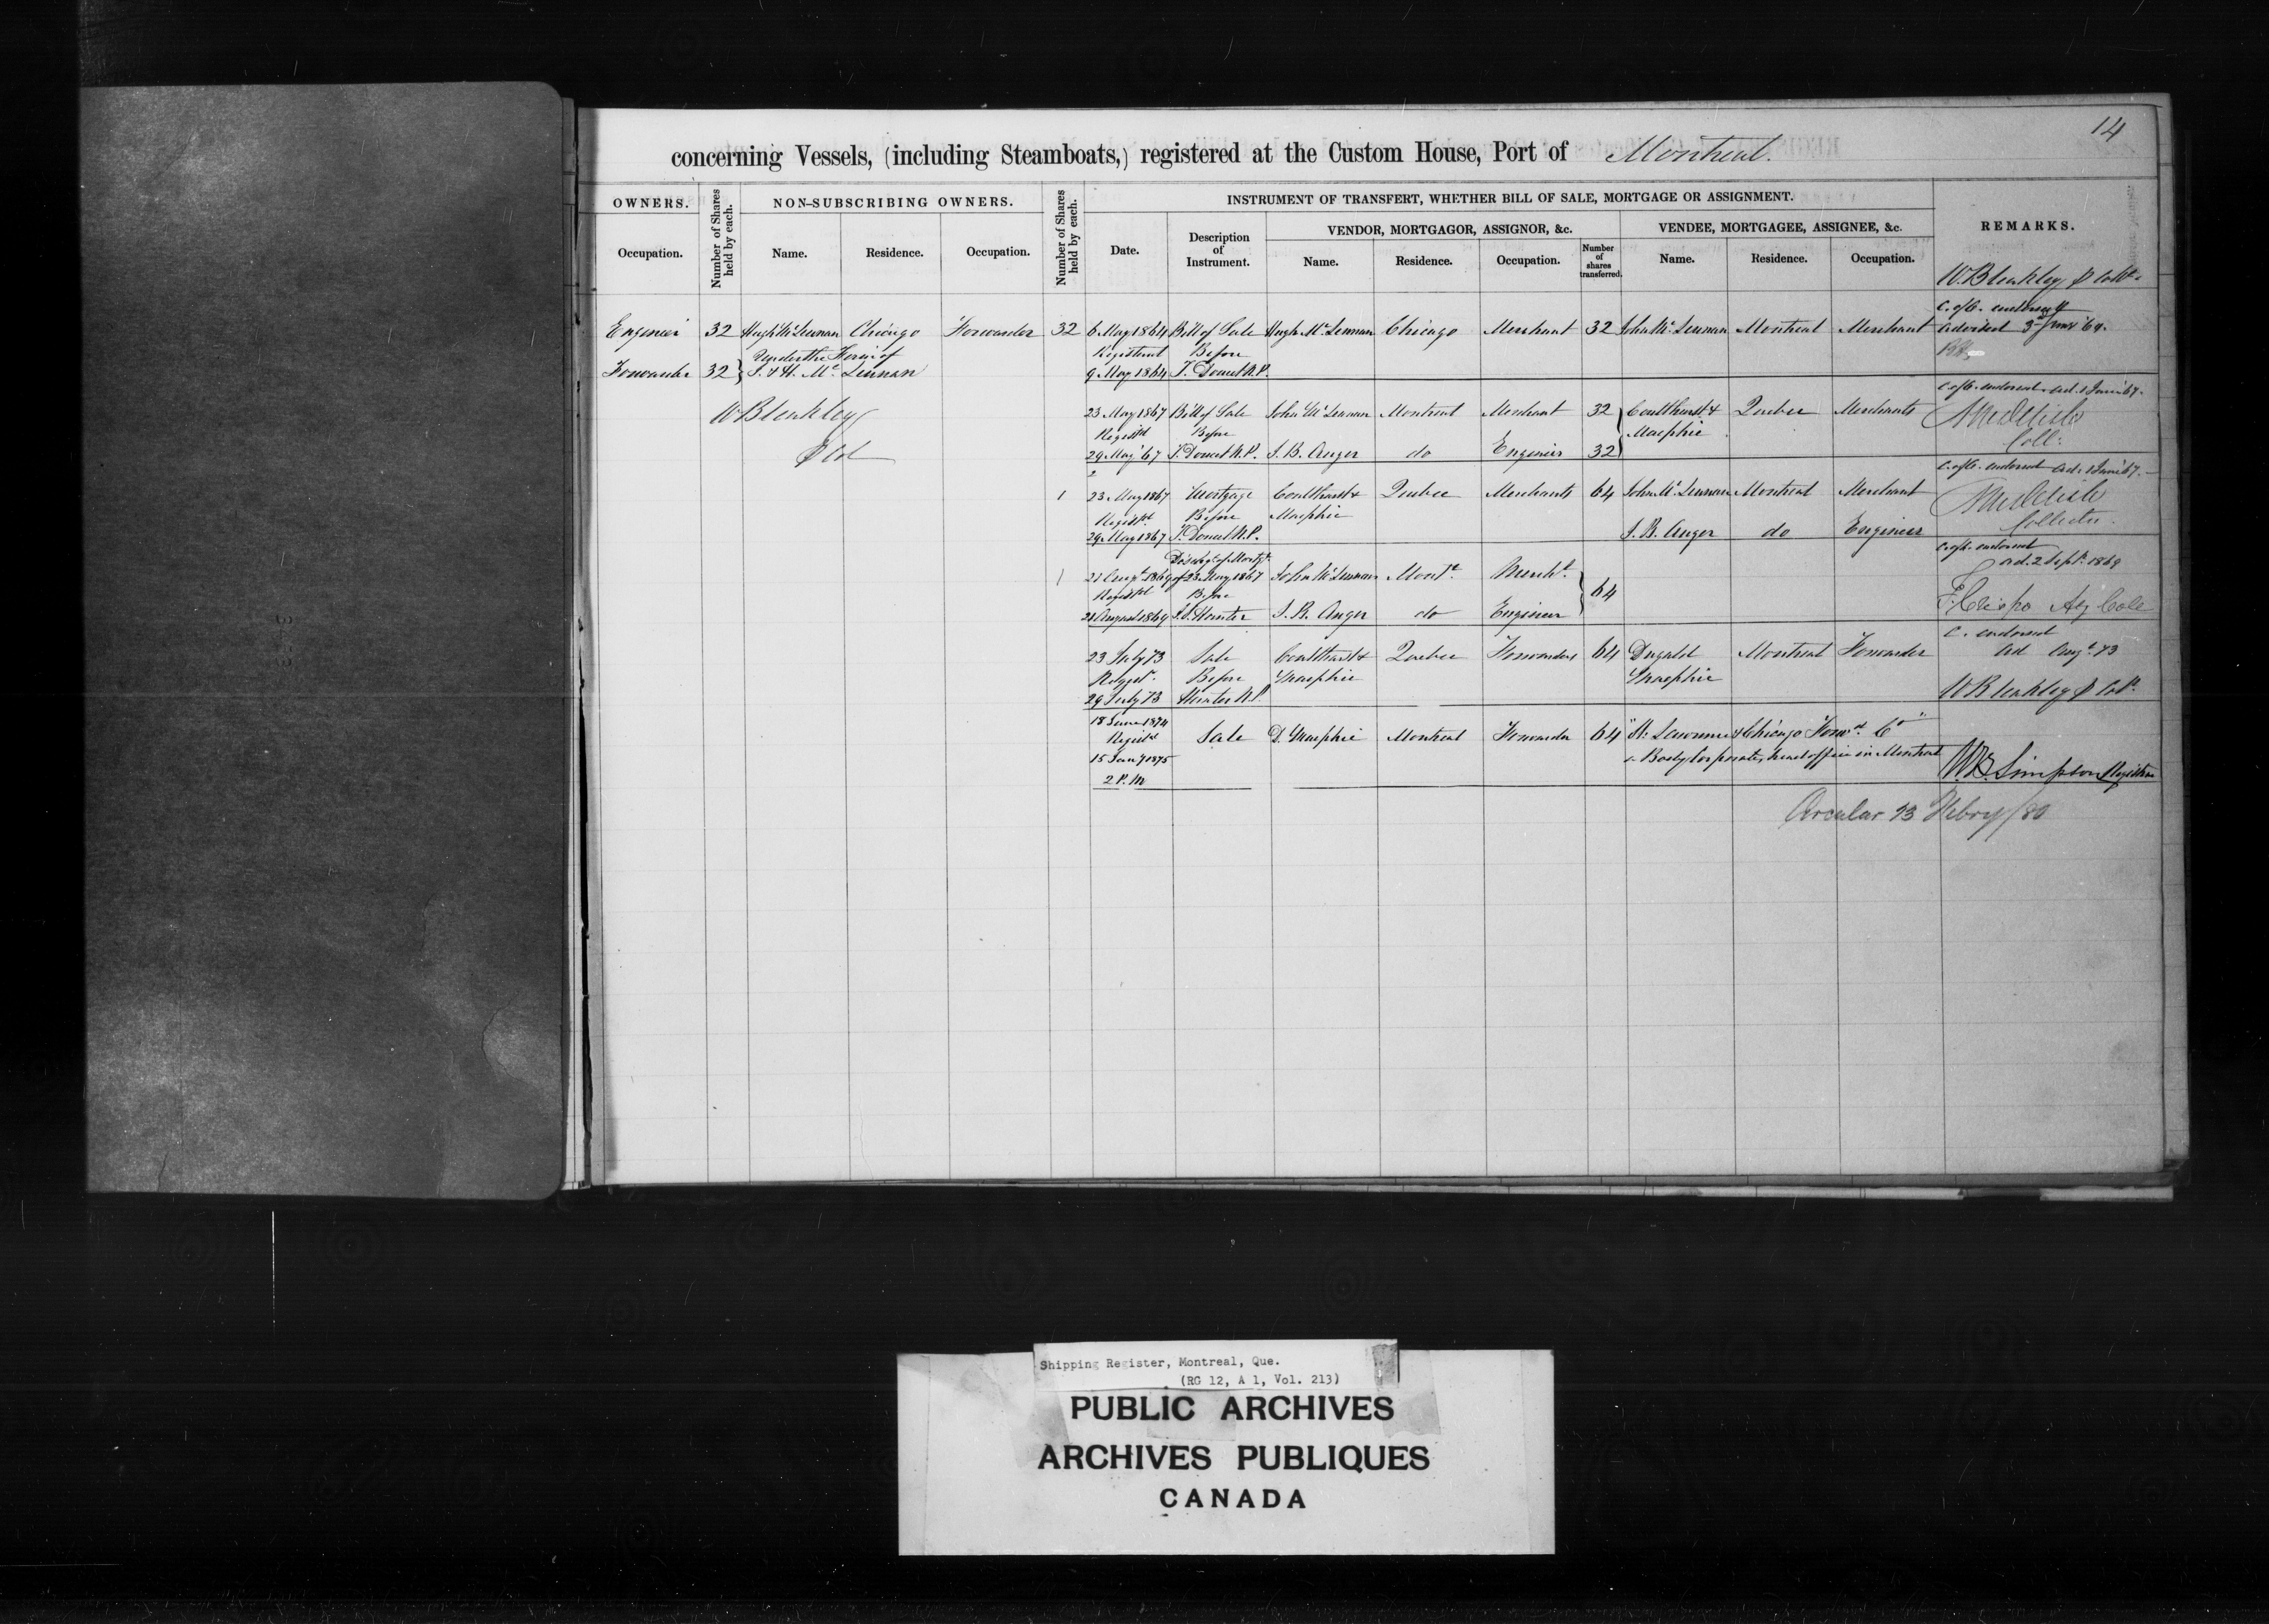 14
concerning Vessels, (including Steamboats,) registered at the Custom House, Port of Montreal.
OWNERS.
Number of Shares held by each.
NON-SUBSCRIBING OWNERS.
Number of Shares held by each.
INSTRUMENT OF TRANSFERT, WHETHER BILL OF SALE, MORTGAGE OR ASSIGNMENT.
REMARKS.
VENDOR, MORTGAGOR, ASSIGNOR, &c.
VENDEE, MORTGAGEE, ASSIGNEE, &c.
Occupation.
Name.
Residence.
Occupation.
Date.
Description of Instrument.
Name.
Residence.
Occupation.
Number of shares transferred.
Name.
Residence.
Occupation.
W. Bleakley
C. of O. endorsed &
Engineer 32 Hugh McLennan Chicago Forwarder 32 6 May 1864 Bill of Sale Hugh McLennan Chicago Merchant 32 John McLennan Montreal Merchant advised 3rd June 64.
Under the Firm of Registered Before
Forwarder 32 J. & H. McLennan 9 May 1864 T. Doucet N.P.
C. of O. endorsed ad. 1 June 67.
W Bleakley 23 May 1867 Bill of Sale John McLennan Montreal Merchant 32 Coulthurst & Quebec Merchants
Registd Before Macphie
29 May 67 T. Doucet N.P. S. B. Anger do Engineer 32
Coll:
C. of O. endorsed ad. 1 June 67.
1 23 May 1867 Mortgage Coulthurst & Quebec Merchants 64 John McLennan Montreal Merchant
Registd Before Macphie
29 May 1867 T. Doucet N.P. S. B. Anger do Engineer
Collector.
Dischge of Mortge C. of O. endorsed
21 Augt 1869 of 23 May 1867 John McLennan Mont. Mercht. 64 ad. 2 Sept. 1869
Registd Before
21 August 1869 J. S. Hunter S. B. Anger do Engineer
C. endorsed
23 July 73 Sale Coulthurst & Quebec Forwarders 64 Dugald Montreal Forwarder ad Augt. 73
Regist. Before Macphie Macphie
29 July 73 Hunter N.P. W Bleakley
18 June 1874
Registd Sale D. Macphie Montreal Forwarder 64 "St. Lawrence & Chicago Forwd. Co"
15 Jany 1875 a Body Corporate, head office in Montreal
2 P.M. W.B. Simpson Registrar
Circular 13 Febry/80
Shipping Register, Montreal, Que.
(RG 12, A 1, Vol. 213)
PUBLIC ARCHIVES
ARCHIVES PUBLIQUES
CANADA